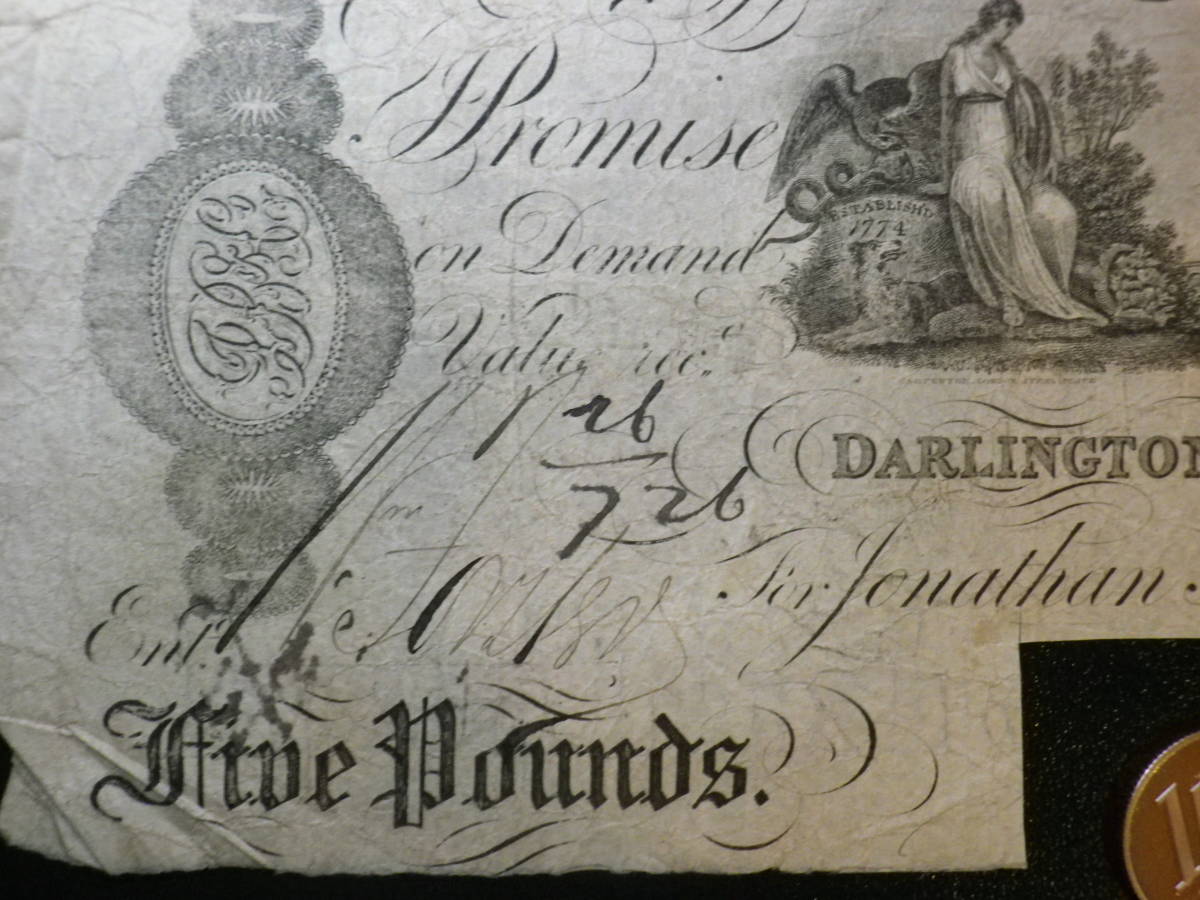 Promise
on Demand
ESTABLISHD
1774
Value rec.d
26
7 26
DARLINGTON
For Jonathan
Ent.d
Five Pounds.